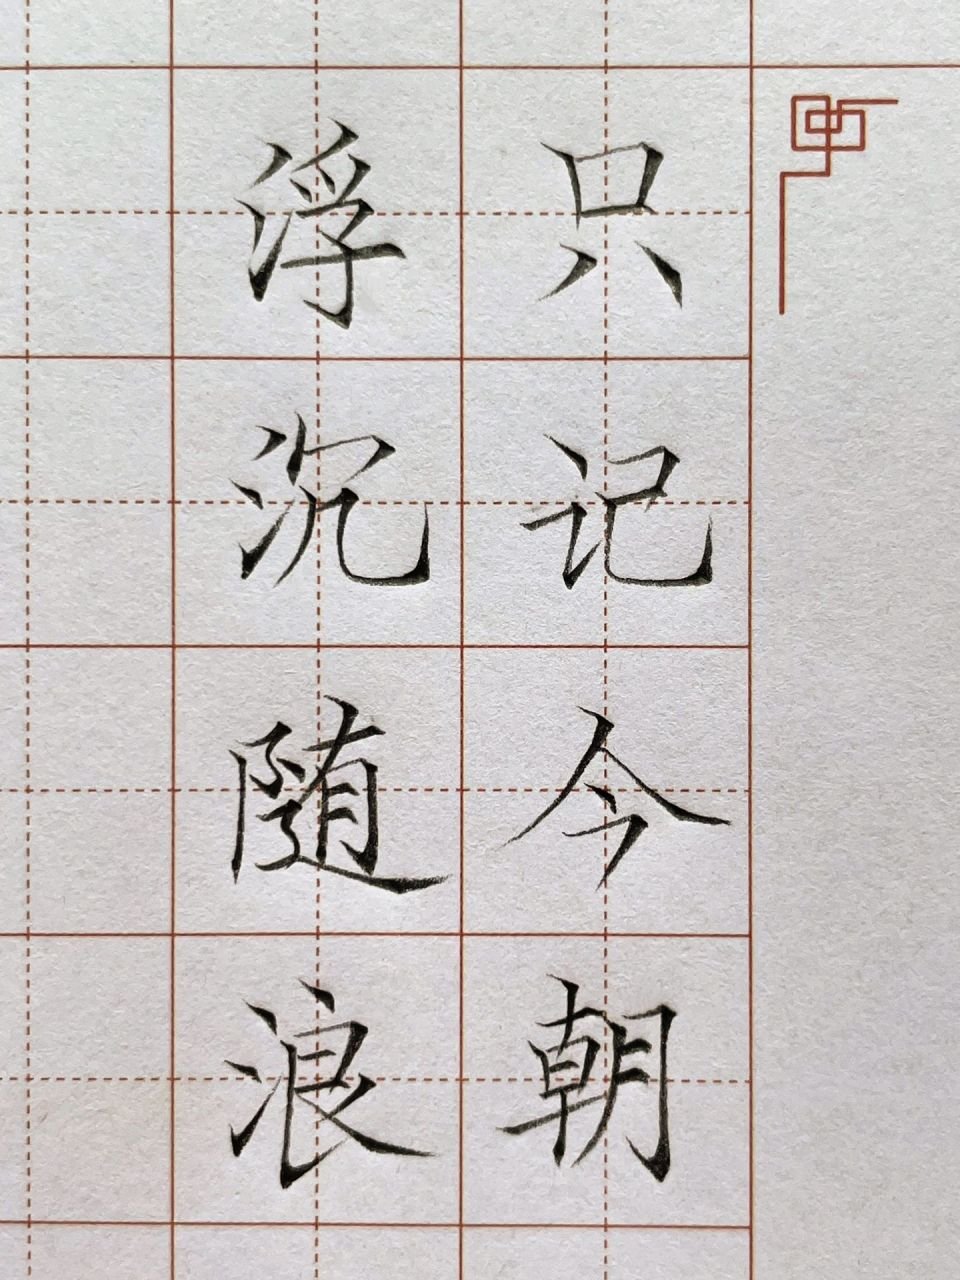 只记今朝
浮沉随浪